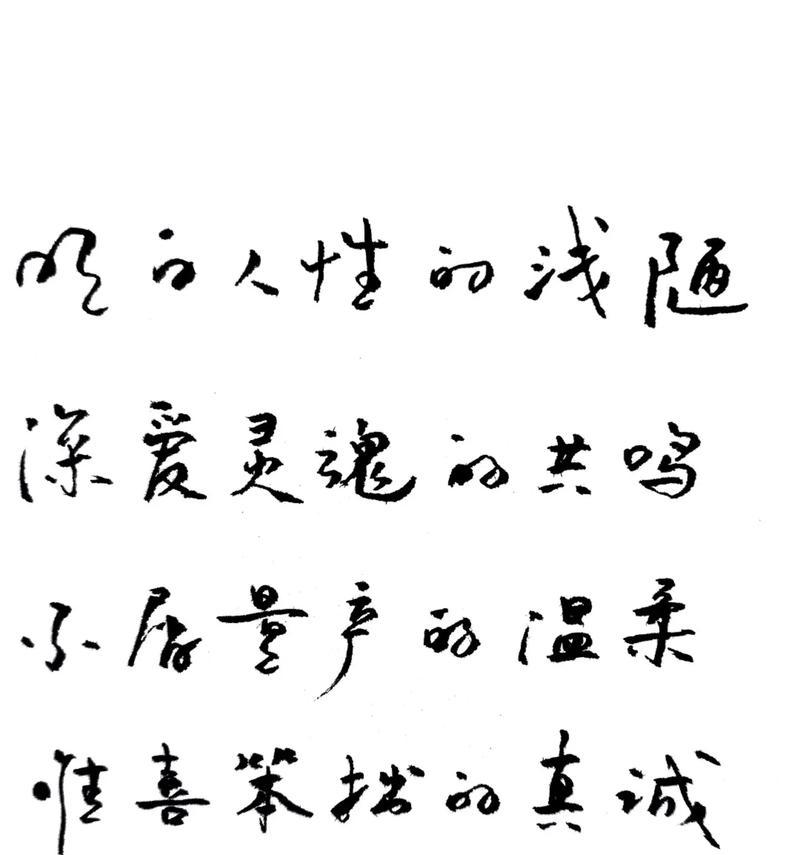 明白人性的浅陋
深爱灵魂的共鸣
不屑量产的温柔
惟喜笨拙的真诚